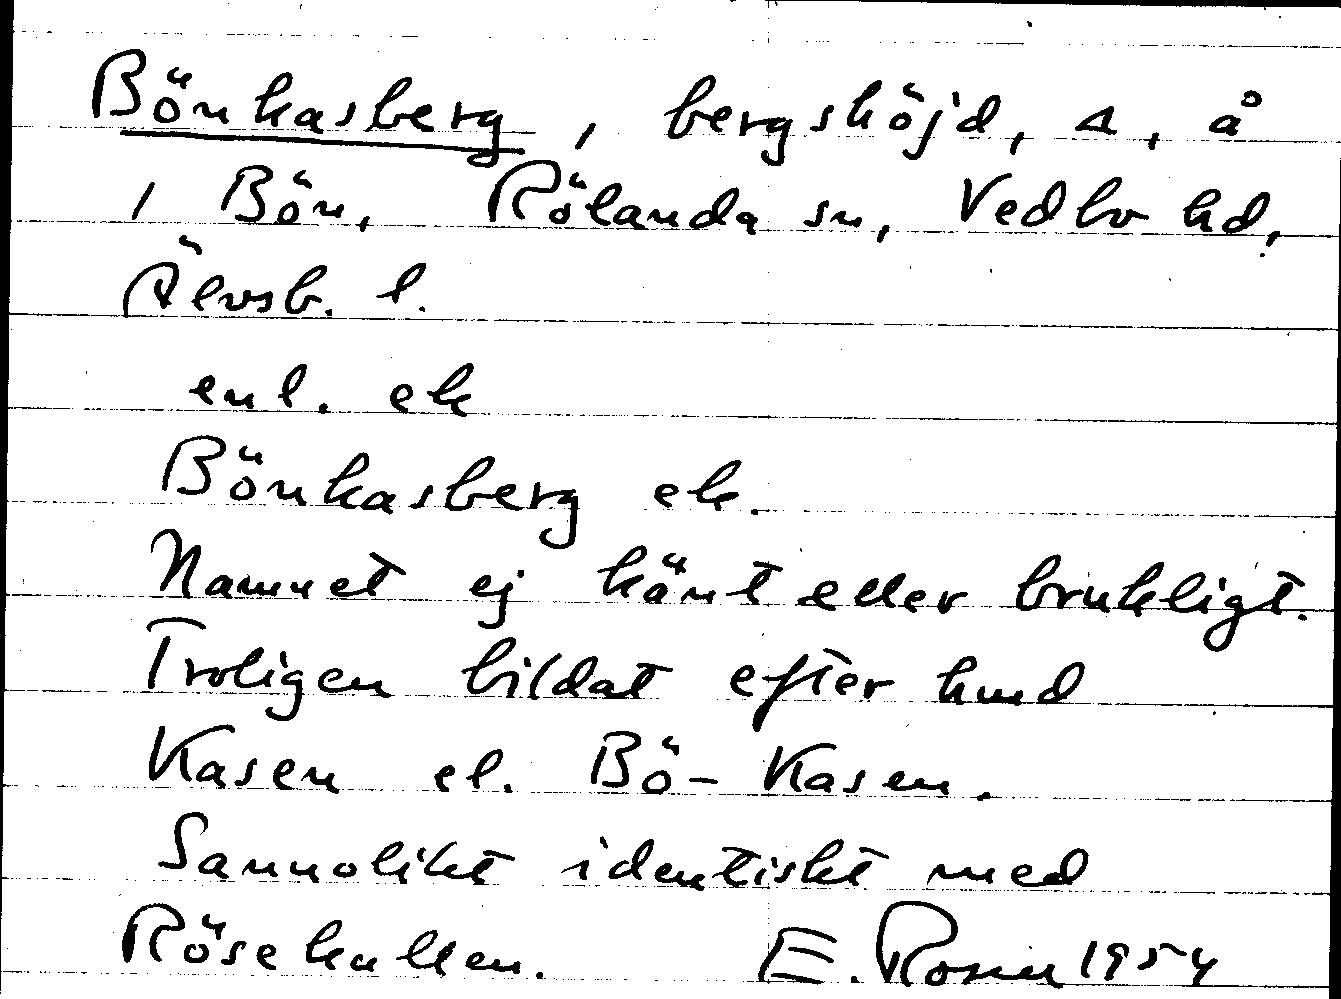 Bönkasberg, bergshöjd, △, å
1 Bön, Rölanda sn, Vedbo hd,
Älvsb. l.
enl. ek
Bönkasberg ek.
Namnet ej känt eller brukligt.
Troligen bildat efter hmd
Kasen el. Bö-Kasen.
Sannolikt identiskt med
Rösekullen. E. Rosin 1954